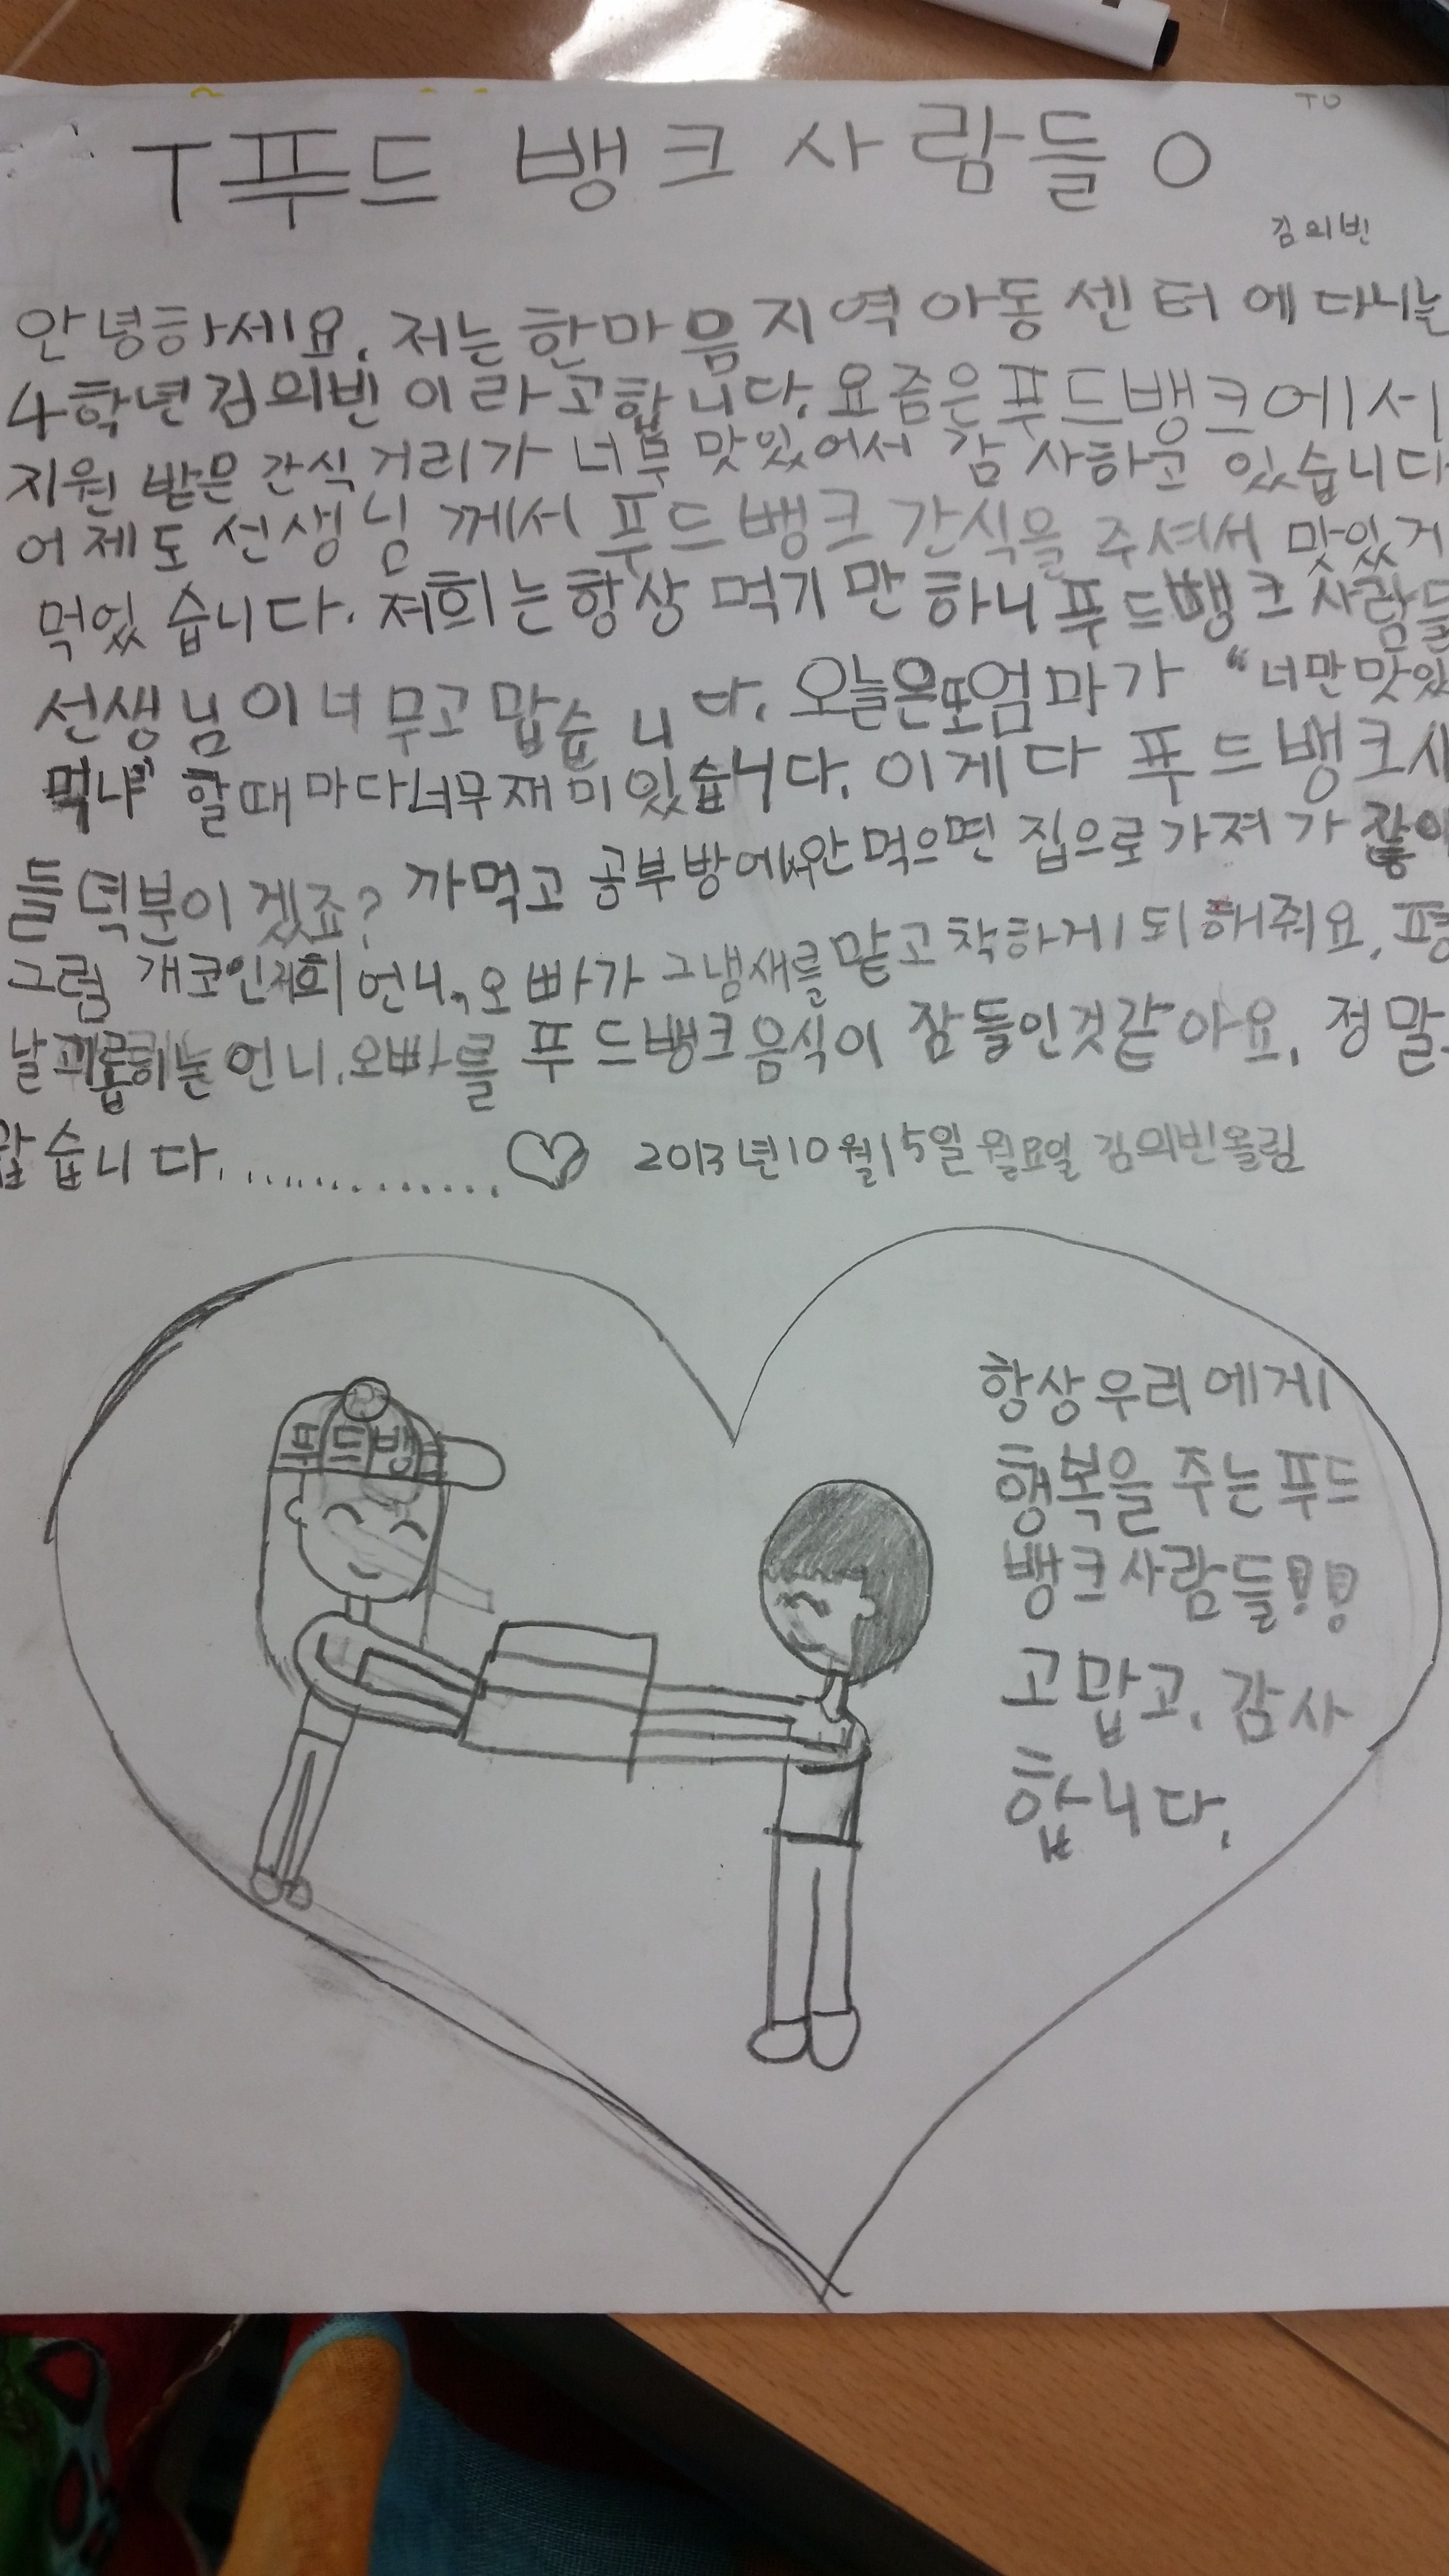 TO
T푸드 뱅크 사람들 O
김의빈
안녕하세요. 저는 한마음지역아동센터에 다니는
4학년 김의빈이라고합니다. 요즘은 푸드뱅크에서
지원 받은 간식거리가 너무 맛있어서 감사하고 있습니다
어제도 선생님께서 푸드뱅크 간식을 주셔서 맛있게
먹었습니다. 저희는 항상 먹기만 하니 푸드뱅크 사람들
선생님이 너무고맙습니다. 오늘은또엄마가 "너만맛있
먹냐" 할때마다너무재미있습니다. 이게다 푸드뱅크사
들덕분이겠죠? 까먹고 공부방에서안먹으면 집으로가져가
그럼 개코인저희언니, 오빠가 그냄새를 맡고 착하게 되해줘요.
괴롭히는 언니,오빠를 푸드뱅크음식이 잠들인것같아요. 정말
맙습니다.............. ♡ 2013년10월15일월요일 김의빈올림
푸드뱅크
항상우리에게
행복을 주는푸드
뱅크사람들!!
고맙고, 감사
합니다.